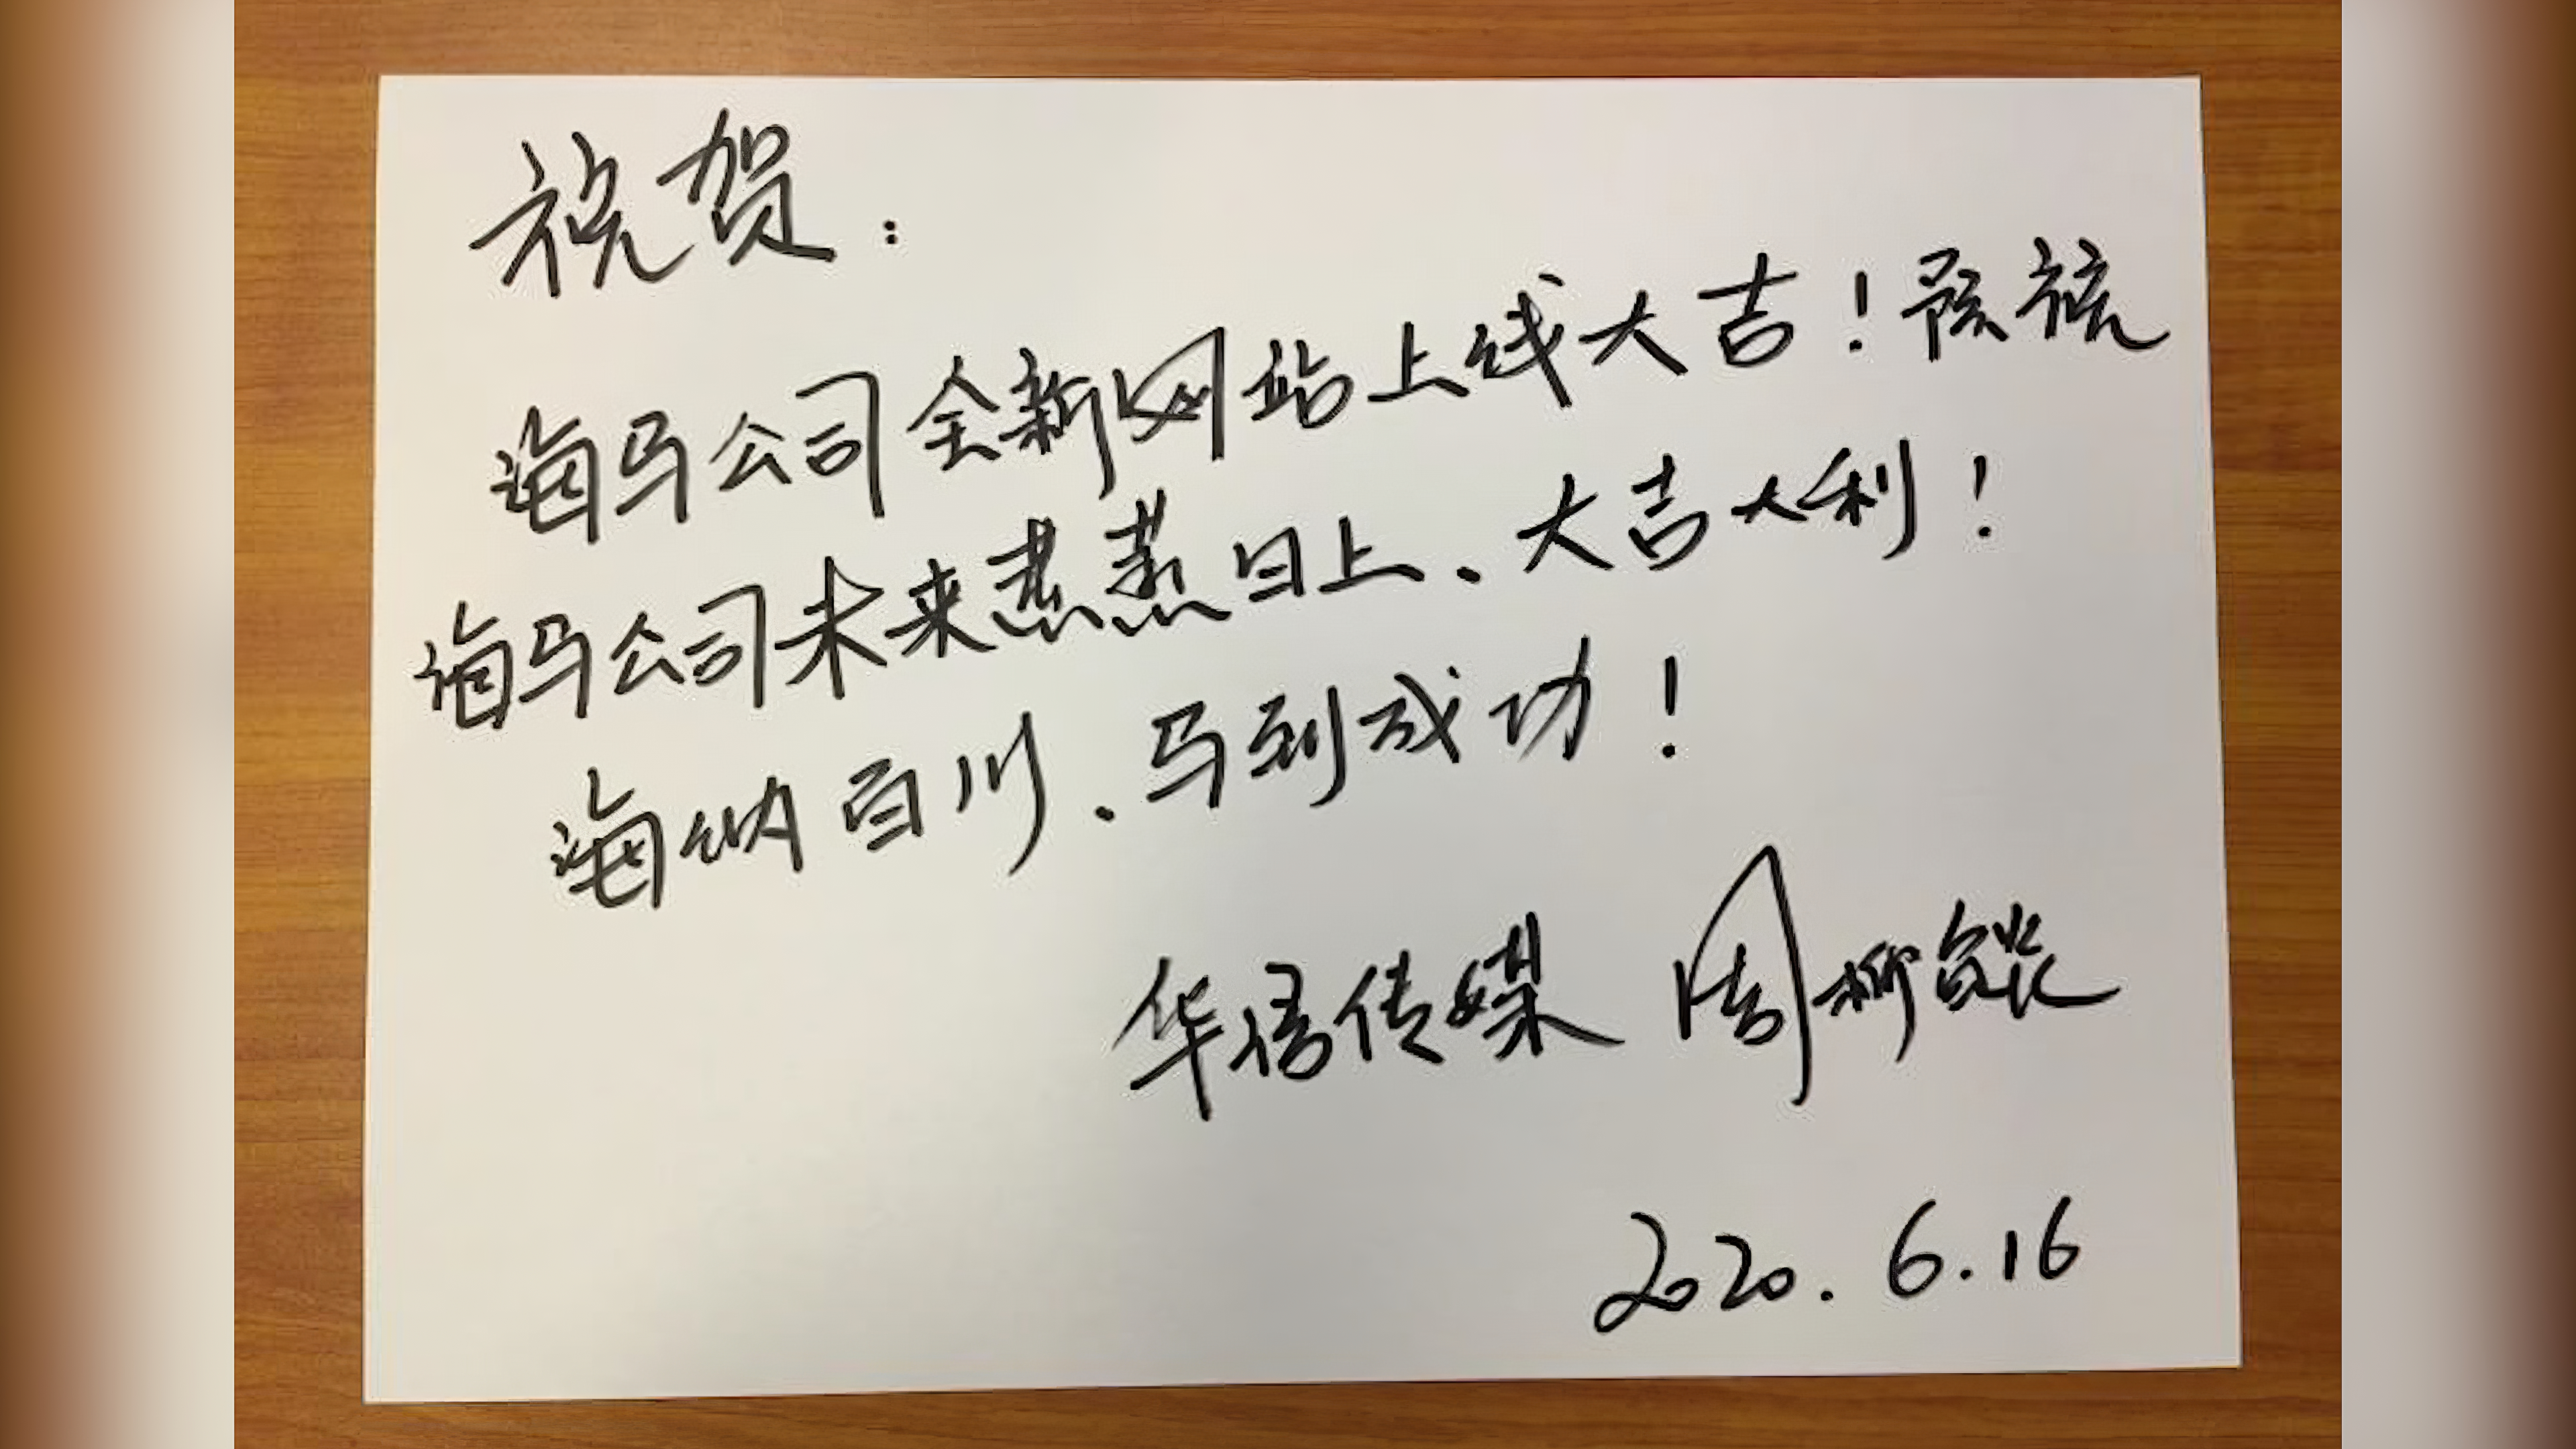 祝贺：
海马公司全新网站上线大吉！预祝
海马公司未来蒸蒸日上、大吉大利！
海纳百川、马到成功！
华传媒 周柳
2020.6.16